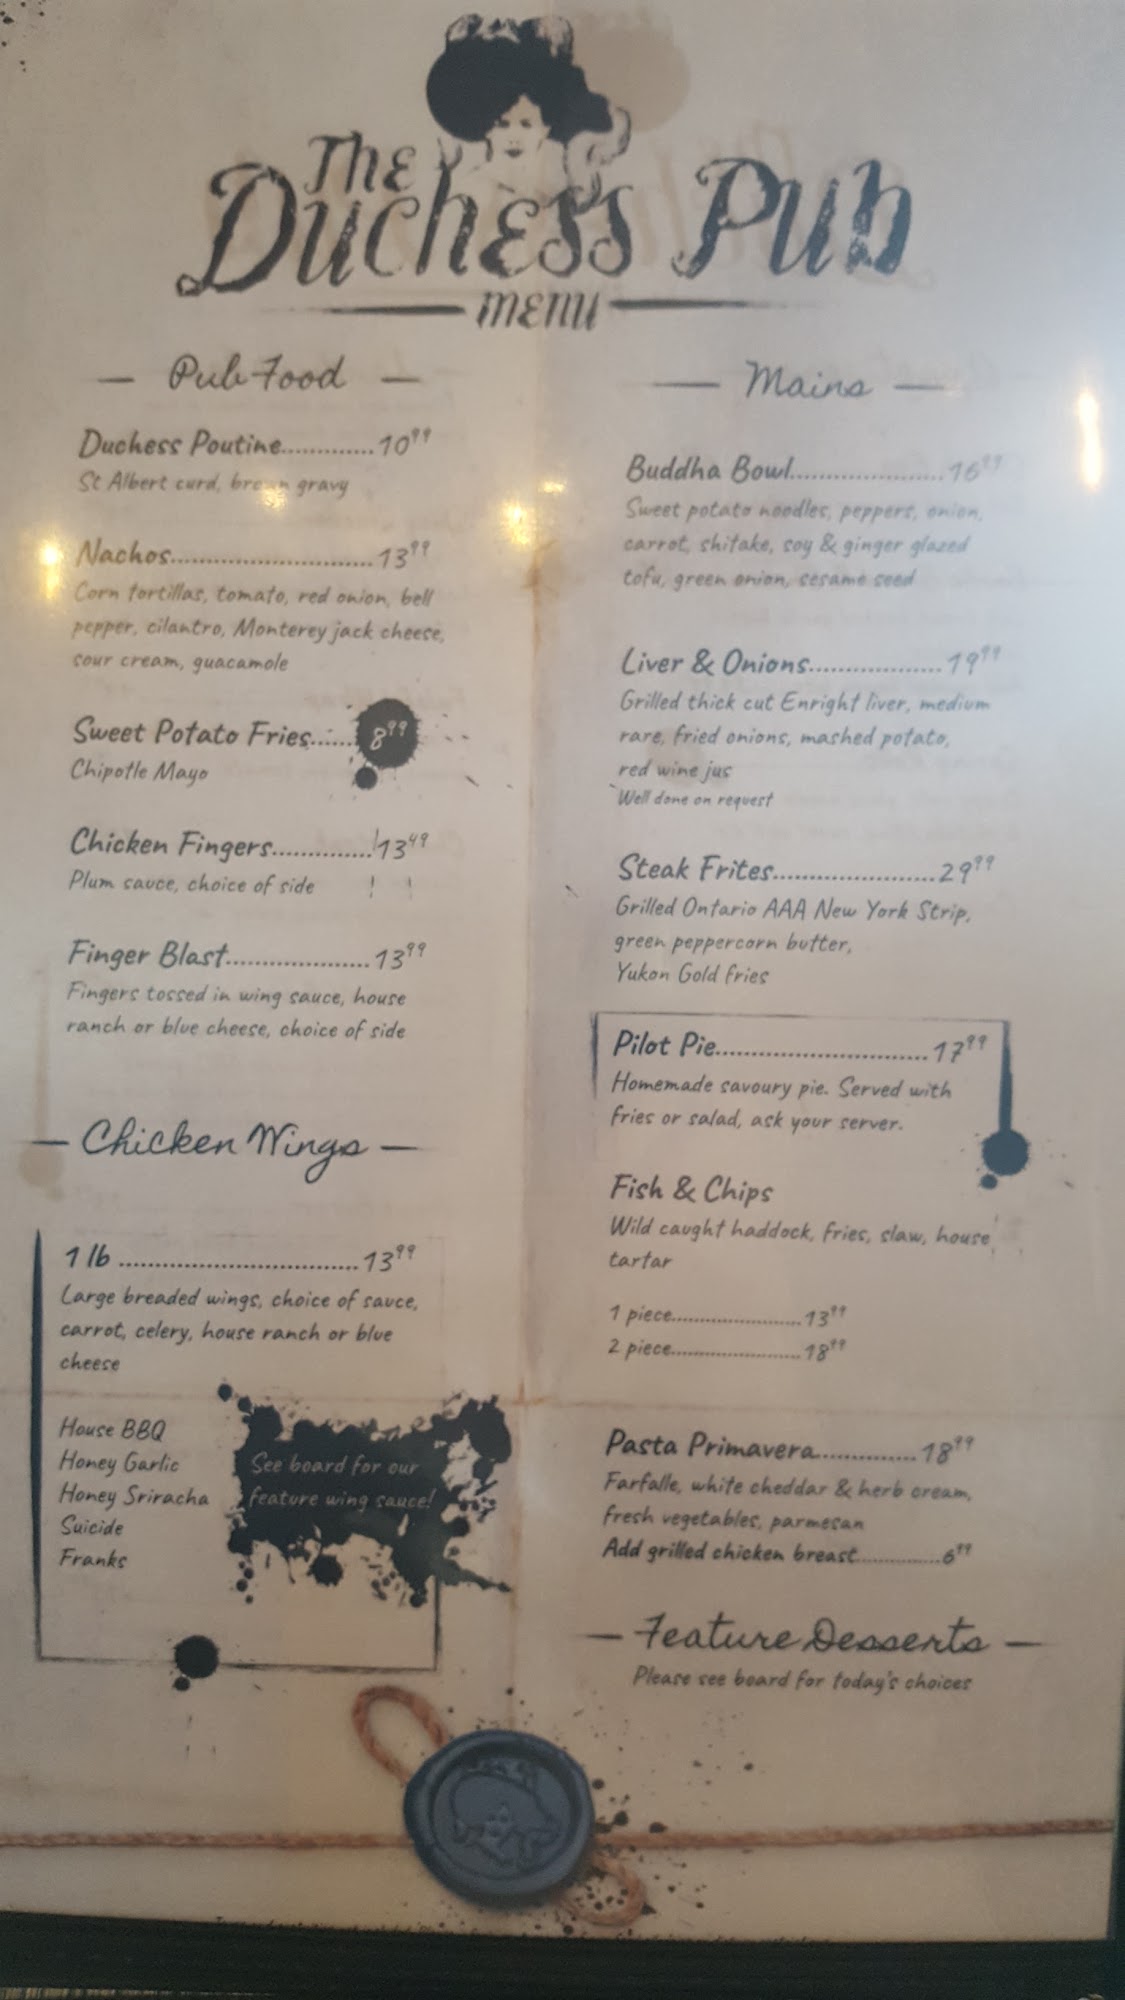 The
Duchess Pub
menu
Pub Food
Duchess Poutine..............10⁹⁹
St Albert curd, brown gravy
Nachos..............................13⁹⁹
Corn tortillas, tomato, red onion, bell
pepper, cilantro, Monterey jack cheese,
sour cream, guacamole
Sweet Potato Fries......8⁹⁹
Chipotle Mayo
Chicken Fingers...............13⁴⁹
Plum sauce, choice of side
Finger Blast.....................13⁹⁹
Fingers tossed in wing sauce, house
ranch or blue cheese, choice of side
Chicken Wings
1 lb ...................................13⁹⁹
Large breaded wings, choice of sauce,
carrot, celery, house ranch or blue
cheese
House BBQ
Honey Garlic
Honey Sriracha
Suicide
Franks
See board for our
feature wing sauce!
Mains
Buddha Bowl.......................16⁹⁹
Sweet potato noodles, peppers, onion,
carrot, shitake, soy & ginger glazed
tofu, green onion, sesame seed
Liver & Onions....................19⁹⁹
Grilled thick cut Enright liver, medium
rare, fried onions, mashed potato,
red wine jus
Well done on request
Steak Frites........................29⁹⁹
Grilled Ontario AAA New York Strip,
green peppercorn butter,
Yukon Gold fries
Pilot Pie................................17⁹⁹
Homemade savoury pie. Served with
fries or salad, ask your server.
Fish & Chips
Wild caught haddock, fries, slaw, house
tartar
1 piece........................13⁹⁹
2 piece........................18⁹⁹
Pasta Primavera..............18⁹⁹
Farfalle, white cheddar & herb cream,
fresh vegetables, parmesan
Add grilled chicken breast...............6⁹⁹
Feature Desserts
Please see board for today's choices